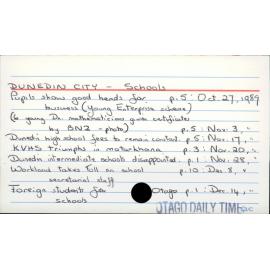 DUNEDIN CITY - Schools
Pupils show good heads for p.5: Oct. 27, 1989
business (Young Enterprise scheme)
(6 young Dn mathematicians given certificates
by BNZ - photo) p.5: Nov. 3, "
Dunedin high school fees to remain constant p.5: Nov. 17, "
KVHS triumphs in matarkhana p.3: Nov. 20, "
Dunedin intermediate schools disappointed. p.1: Nov. 28, "
Workload takes toll on school p.10: Dec. 8, "
secretarial staff
Foreign students for Otago p.1: Dec. 14, "
schools
OTAGO DAILY TIMES